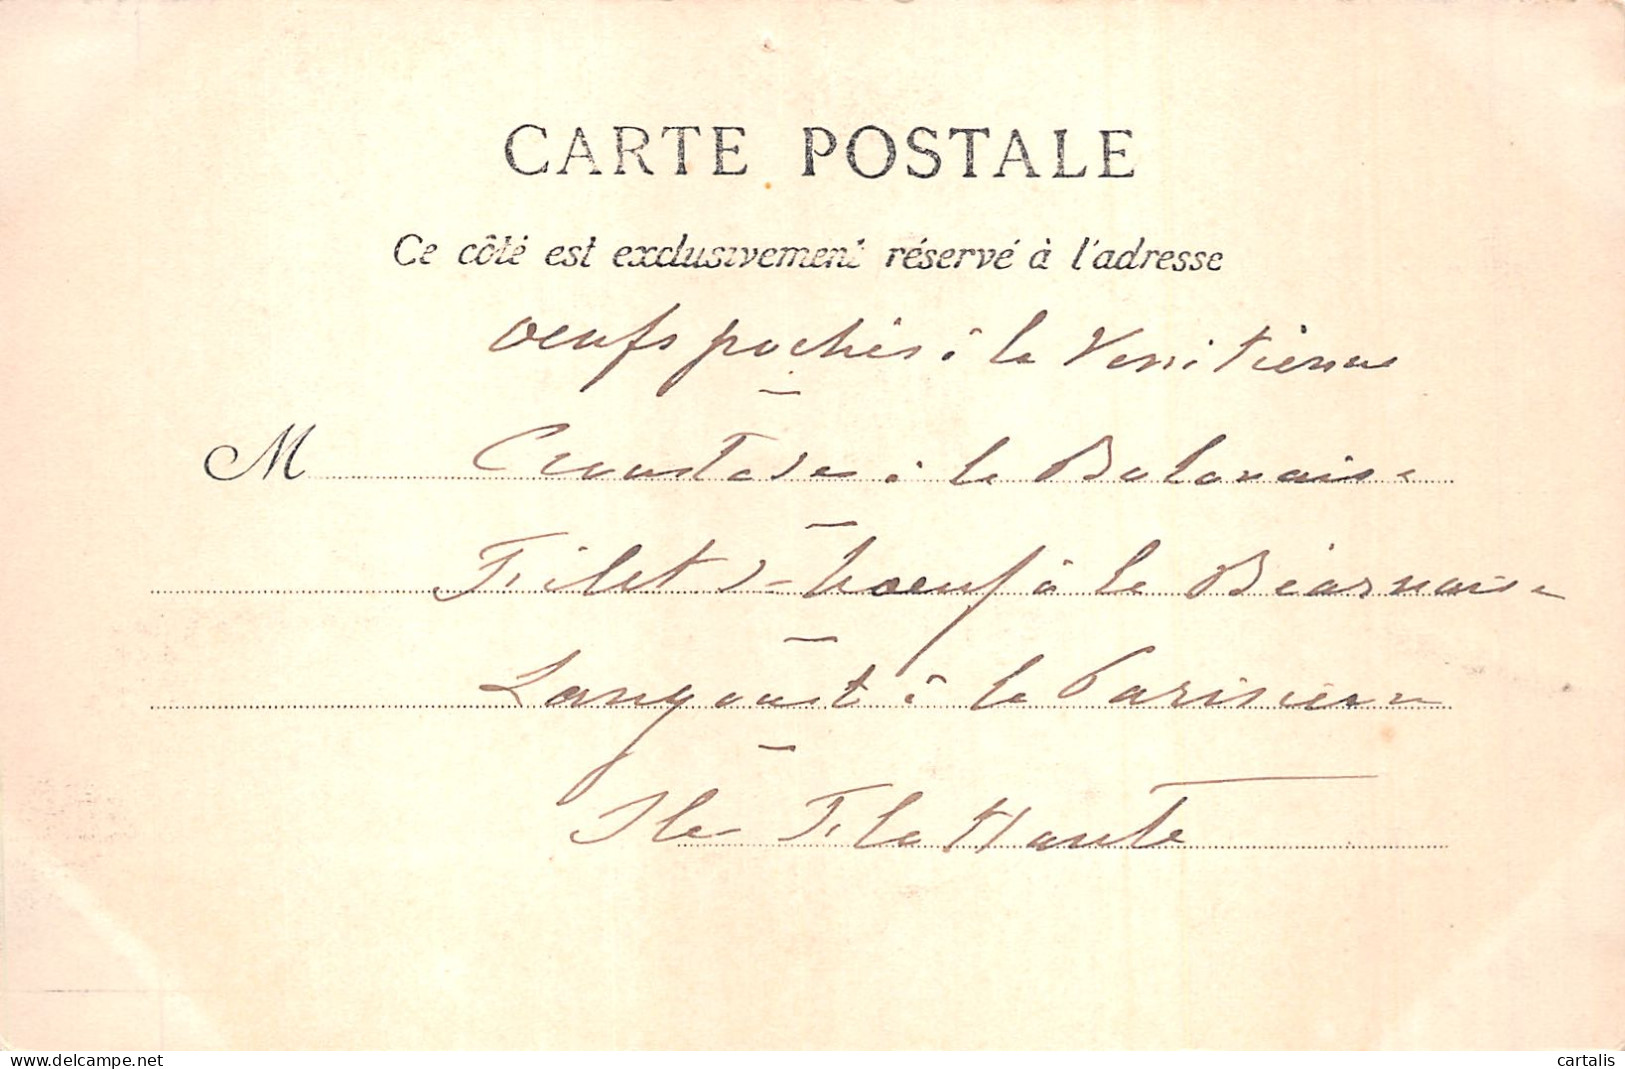 CARTE POSTALE
Ce côté est exclusivement réservé à l'adresse
oeufs pochés à la Venitienne
M Croustade à la Bolonaise
Filet de boeuf à la Béarnaise
Langouste à la Parisienne
Ile Haute
delcampe.net
cartalis